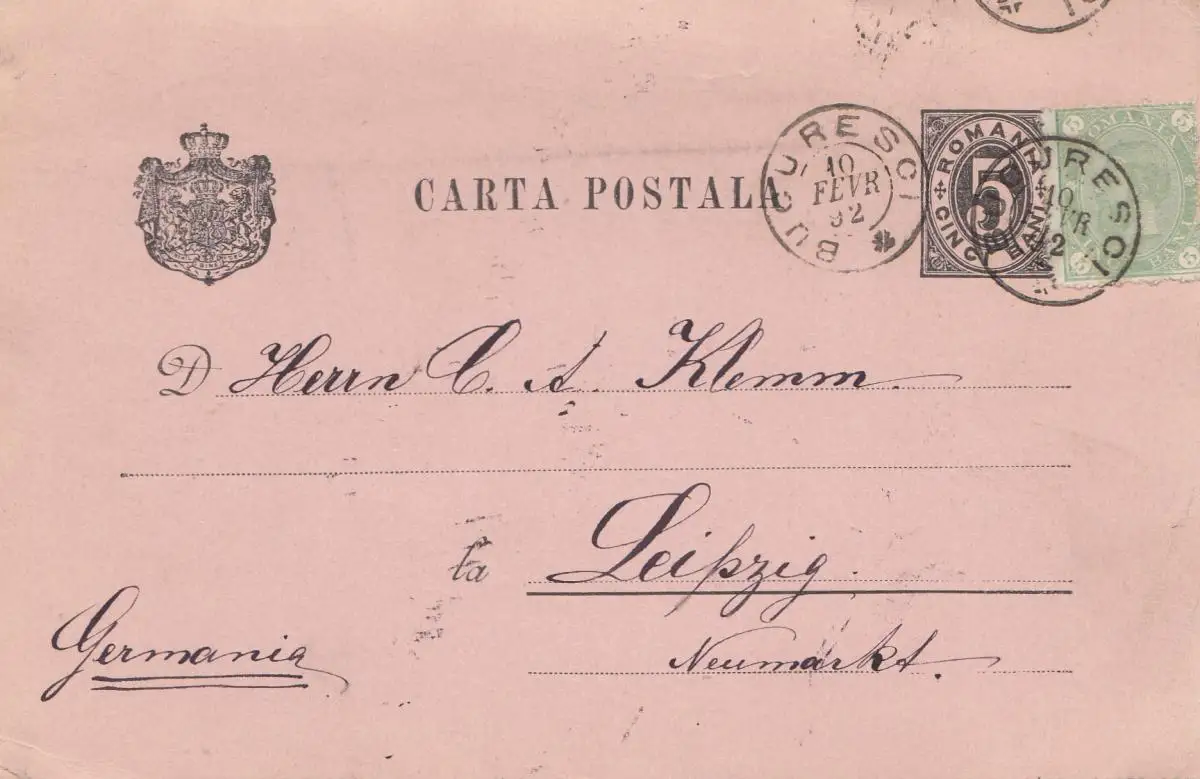 CARTA POSTALA
BUCURESCI
10
FEVR
92
ROMANIA
5
CINCI BANI
BUCURESCI
10
FEVR
92
ROMANIA
5 5
5 5
BANI
D Herrn C. A. Klemm.
la Leipzig.
Neumarkt.
Germania